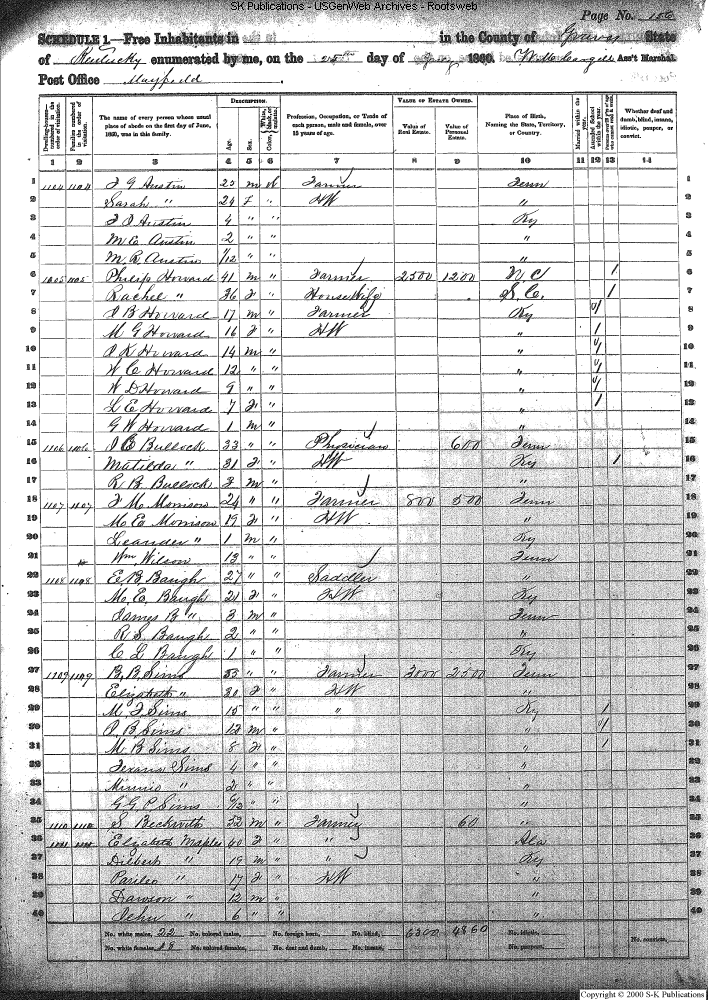 SK Publications - USGenWeb Archives - Rootsweb
Page No. 156
SCHEDULE 1.—Free Inhabitants in in the County of Graves State
of Kentucky enumerated by me, on the 25th day of 1860. Ass't Marshal.
Post Office Mayfield
DESCRIPTION. VALUE OF ESTATE OWNED.
Dwelling-houses—numbered in the order of visitation. Families numbered in the order of visitation. The name of every person whose usual place of abode on the first day of June, 1860, was in this family. Age. Sex. Color, Profession, Occupation, or Trade of each person, male and female, over 15 years of age. Value of Real Estate. Value of Personal Estate. Place of Birth, Naming the State, Territory, or Country. Married within the year. Attended School within the year. Whether deaf and dumb, blind, insane, idiotic, pauper, or convict.
1 2 3 4 5 6 7 8 9 10 11 12 13 14
1 1104 1104 J G Austin 25 m W Farmer Tenn 1
2 Sarah " 24 F " HW " 2
3 Austin 4 " " Ky 3
4 M E Austin 2 " " " 4
5 M R Austin 1/12 " " " 5
6 1105 1105 Philip Howard 41 m " Farmer 2500 1200 N C / 6
7 Rachel " 36 F " House Wife S. C. / 7
8 B Howard 17 m " Farmer Ky / 8
9 M G Howard 16 F " HW " / 9
10 K Howard 14 m " " / 10
11 W C Howard 12 " " " / 11
12 W D Howard 9 " " " / 12
13 L E Howard 7 F " " / 13
14 G W Howard 1 m " " 14
15 1106 1106 Bullock 33 " " Physician 600 Tenn 15
16 Matilda " 21 F " HW Ky / 16
17 R B Bullock 2 m " " 17
18 1107 1107 J M Morrison 24 " " Farmer 800 500 Tenn 18
19 M E Morrison 19 F " HW " 19
20 Leander " 1 m " Ky 20
21 Wm Wilson 13 " " Tenn 21
22 1108 1108 E B Baugh 27 " " Saddler " 22
23 M. E. Baugh 21 F " HW Ky 23
24 James B " 3 m " Tenn 24
25 R S Baugh 2 " " " 25
26 C L Baugh 1 " " Ky 26
27 1109 1109 B. B. Sims 33 " " Farmer 3000 2500 Tenn 27
28 Elizabeth " 30 F " HW " 28
29 M F Sims 15 " " " Ky / 29
30 B Sims 12 m " " / 30
31 M B Sims 8 F " " / 31
32 Texana Sims 4 " " " 32
33 Minnie " 2 " " " 33
34 G G P Sims 9/12 " " " 34
35 1110 1110 S Beckwith 52 m " Farmer 60 " 35
36 Elizabeth Maples 40 F " " Ala 36
37 Dilbert " 19 m " " Ky 37
38 " 17 F " HW " 38
39 Dawson " 12 m " " 39
40 Jehu " 6 " " " 40
No. white males, 22 No. colored males, No. foreign born, No. blind, 6300 4860 No. idiotic,
No. white females, 18 No. colored females, No. deaf and dumb, No. insane, No. paupers, No. convicts,
Copyright © 2000 S-K Publications